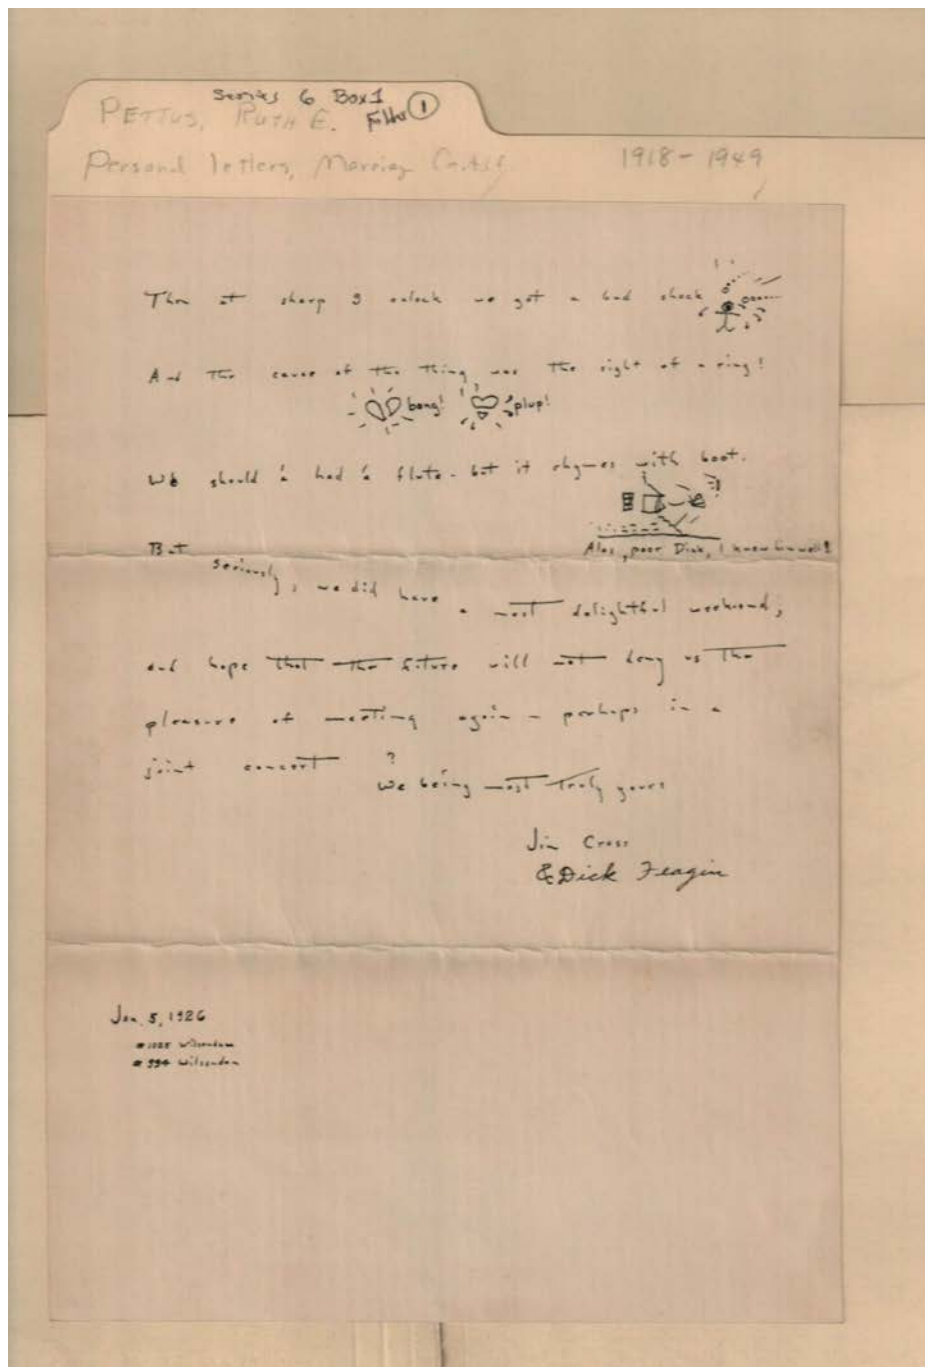 Series 6 Box 1
PETTUS, RUTH E. Folder 1
Personal letters, Marriag Certif 1918-1949
Then at sharp 9 oclock we got a bad shock
And the cause of the thing was the right of a ring!
bong! plup!
We should 'a had 'a flute - but it rhymes with boot.
Alas, poor Dick, I knew him well!
But seriously, we did have a most delightful weekend,
and hope that the future will not deny us the
pleasure of meeting again - perhaps in a
joint concert?
We being most truly yours
Jim Cross
& Dick Feagin
Jan. 5, 1926
#1025 Wilsondam
#994 Wilsondam